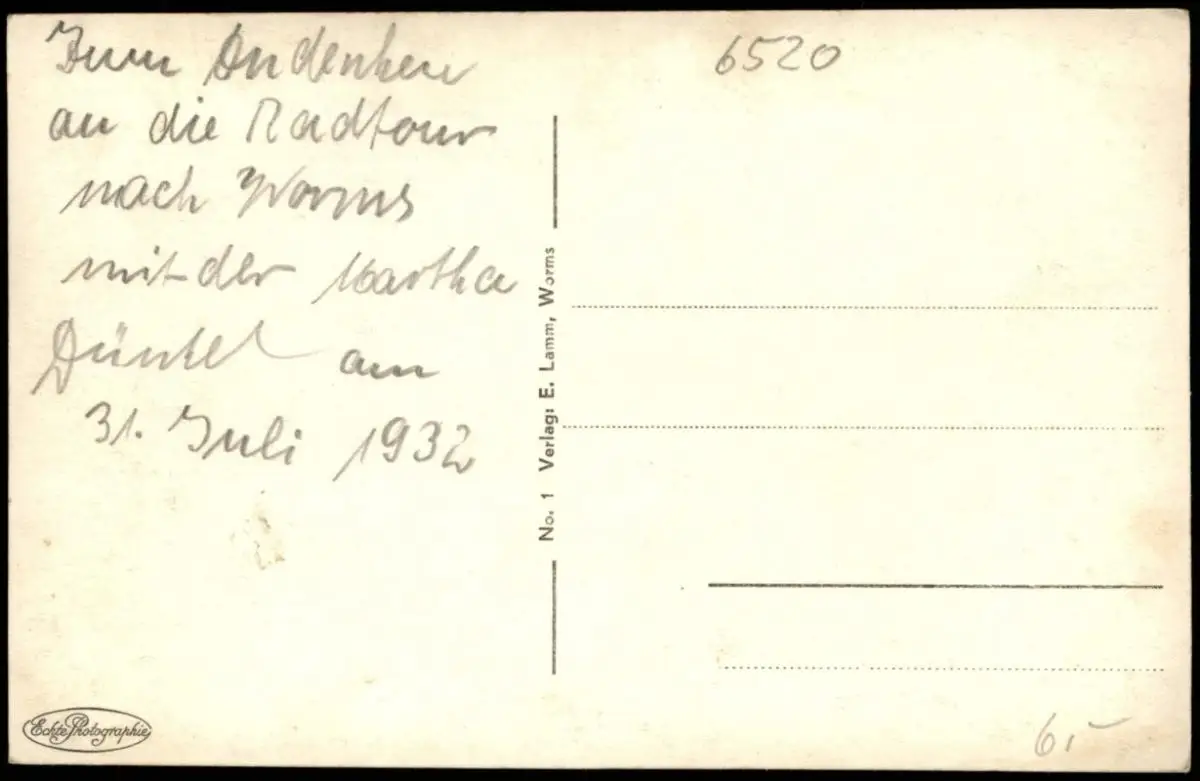 Zum Andenken
an die Radtour
nach Worms
mit der Martha
am
31. Juli 1932
6520
No. 1 Verlag: E. Lamm, Worms
Echte Photographie
6,-